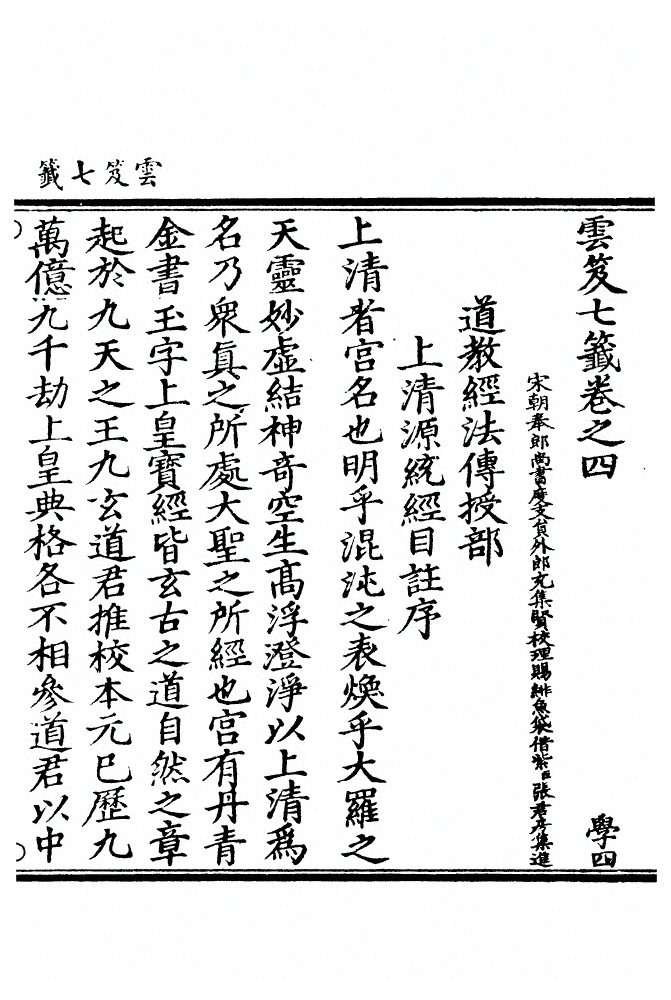 雲笈七籤
雲笈七籤卷之四
學四
宋朝奉郎尚書度支員外郎充集賢校理賜緋魚袋借紫臣張君房集進
道教經法傳授部
上清源統經目註序
上清者宮名也明乎混沌之表煥乎大羅之
天靈妙虛結神奇空生高浮澄淨以上清爲
名乃衆眞之所處大聖之所經也宮有丹青
金書玉字上皇寶經皆玄古之道自然之章
起於九天之王九玄道君推校本元已歷九
萬億九千劫上皇典格各不相參道君以中